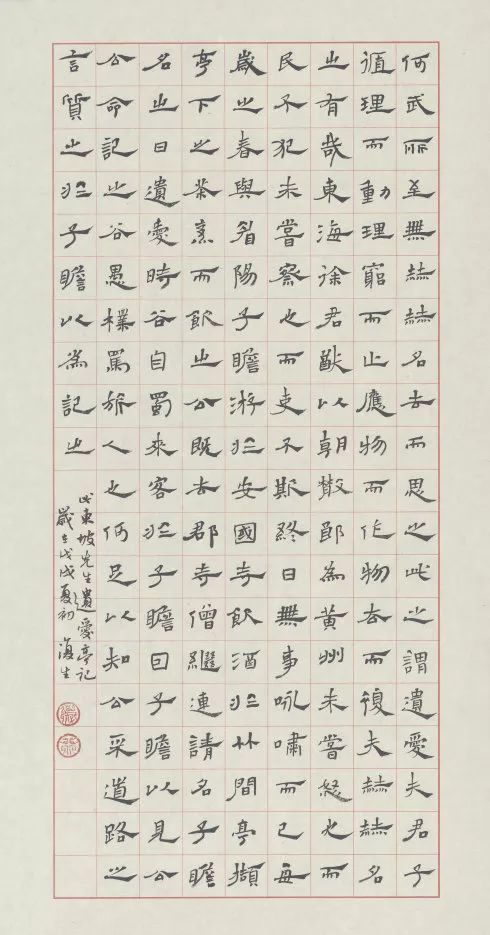 何武所至無赫赫名去而思之此之謂遺愛夫君子
循理而動理窮而止應物而作物去而復夫赫赫名
之有哉東海徐君猷以朝散郎為黃州未嘗怒也而
民不犯未嘗察也而吏不欺終日無事咏嘯而已每
歲之春與眉陽子瞻游於安國寺飲酒於竹間亭擷
亭下之茶烹而飲之公既去郡寺僧繼連請名子瞻
名之曰遺愛時谷自蜀來客於子瞻因子瞻以見公
公命記之谷愚樸羈旅人也何足以知公采道路之
言質之於子瞻以為記之
東坡先生遺愛亭記
歲在戊戌夏初